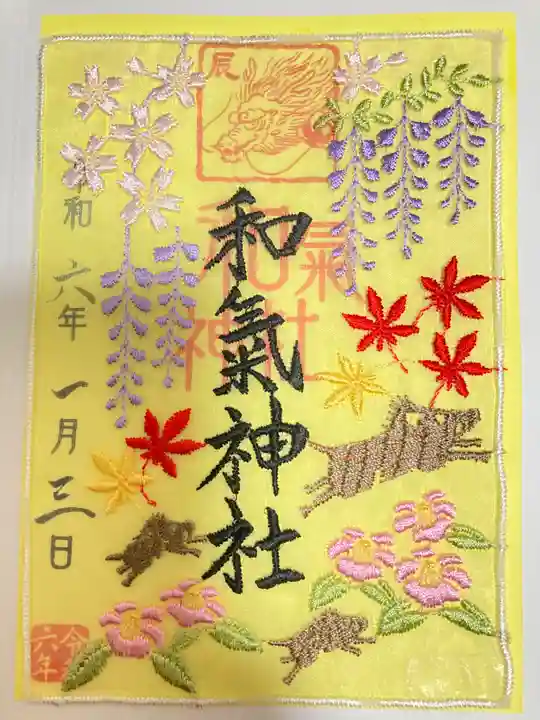 辰
和氣神社
和氣神社
令和六年一月三日
令和六年